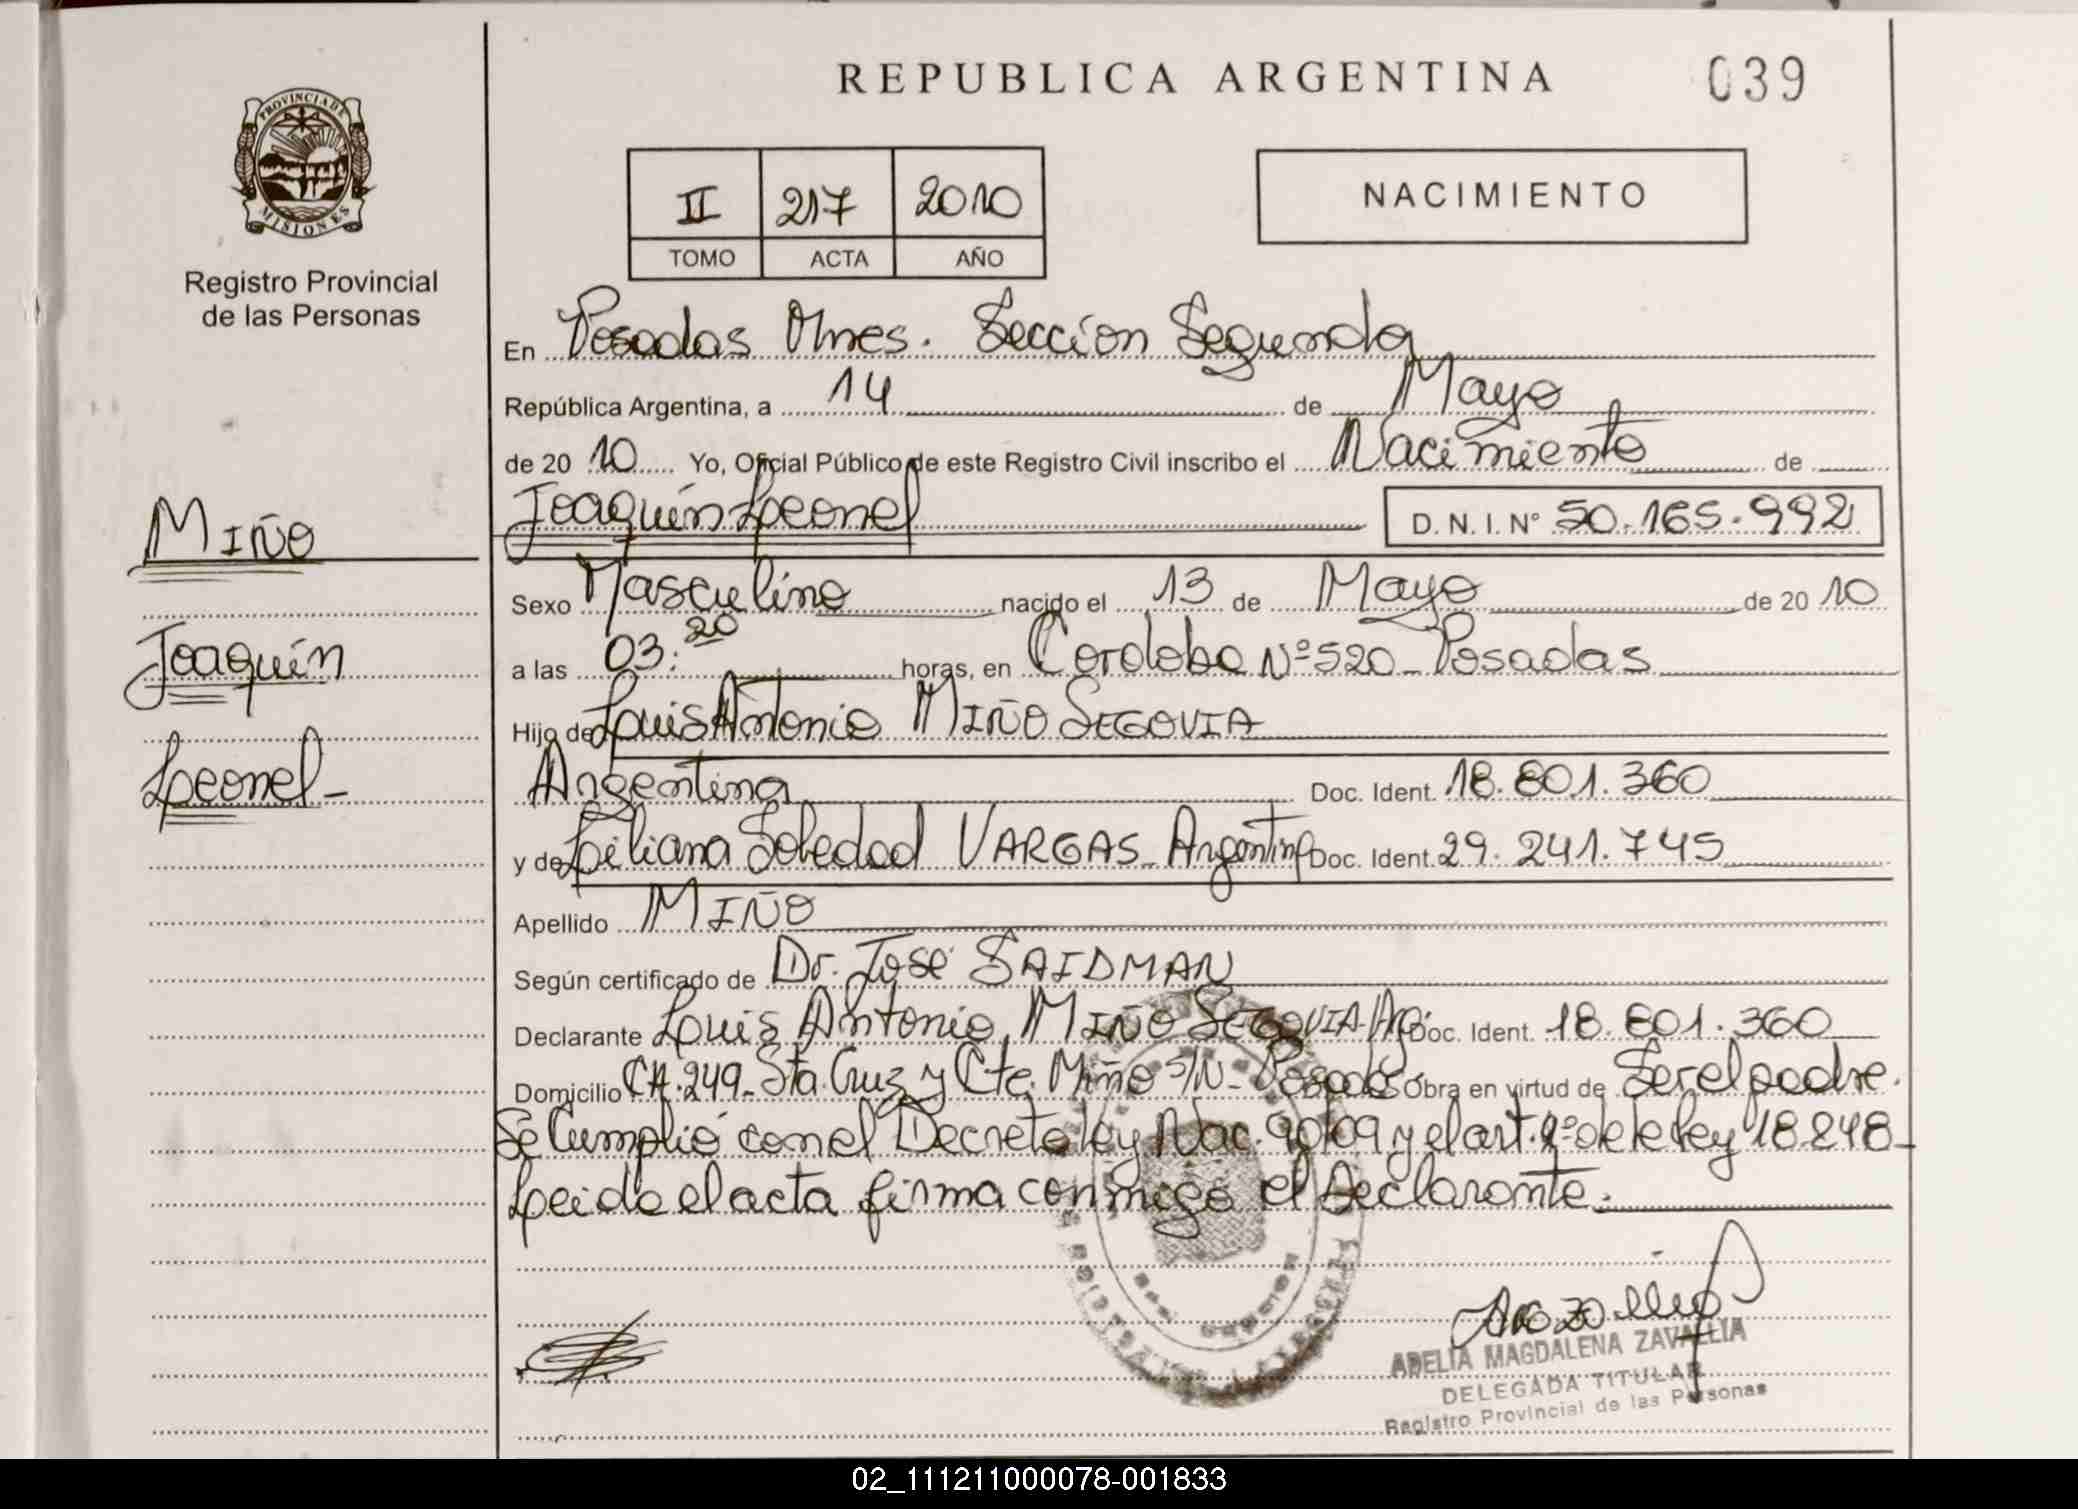 REPUBLICA ARGENTINA
039
PROVINCIA DE
MISIONES
Registro Provincial
de las Personas
II 217 2010
TOMO ACTA AÑO
NACIMIENTO
En Posadas Mnes. Sección Segunda
República Argentina, a 14 de Mayo
de 2010 Yo, Oficial Público de este Registro Civil inscribo el Nacimiento de
Joaquín Leonel D. N. I. N° 50.165.992
MIÑO
Joaquín
Leonel-
Sexo Masculino nacido el 13 de Mayo de 2010
a las 03:20 horas, en Cordoba Nº 520_Posadas
Hijo de Louis Antonio MIÑO SEGOVIA
Argentina Doc. Ident. 18.801.360
y de Liliana Soledad VARGAS_Argentina Doc. Ident. 29.241.745
Apellido MIÑO
Según certificado de Dr. José SAIDMAN
Declarante Louis Antonio MIÑO SEGOVIA-Arg. Doc. Ident. 18.801.360
Domicilio CH.249_Sta. Cruz y Cte. Miño S/N_Posadas Obra en virtud de Ser el padre.
Se Cumplió con el Decreto ley Nac. 90/09 y el art. de la ley 18.248_
Leida el acta firma conmigo el declarante.
ADELIA MAGDALENA ZAVALLIA
DELEGADA TITULAR
Registro Provincial de las Personas
02_111211000078-001833